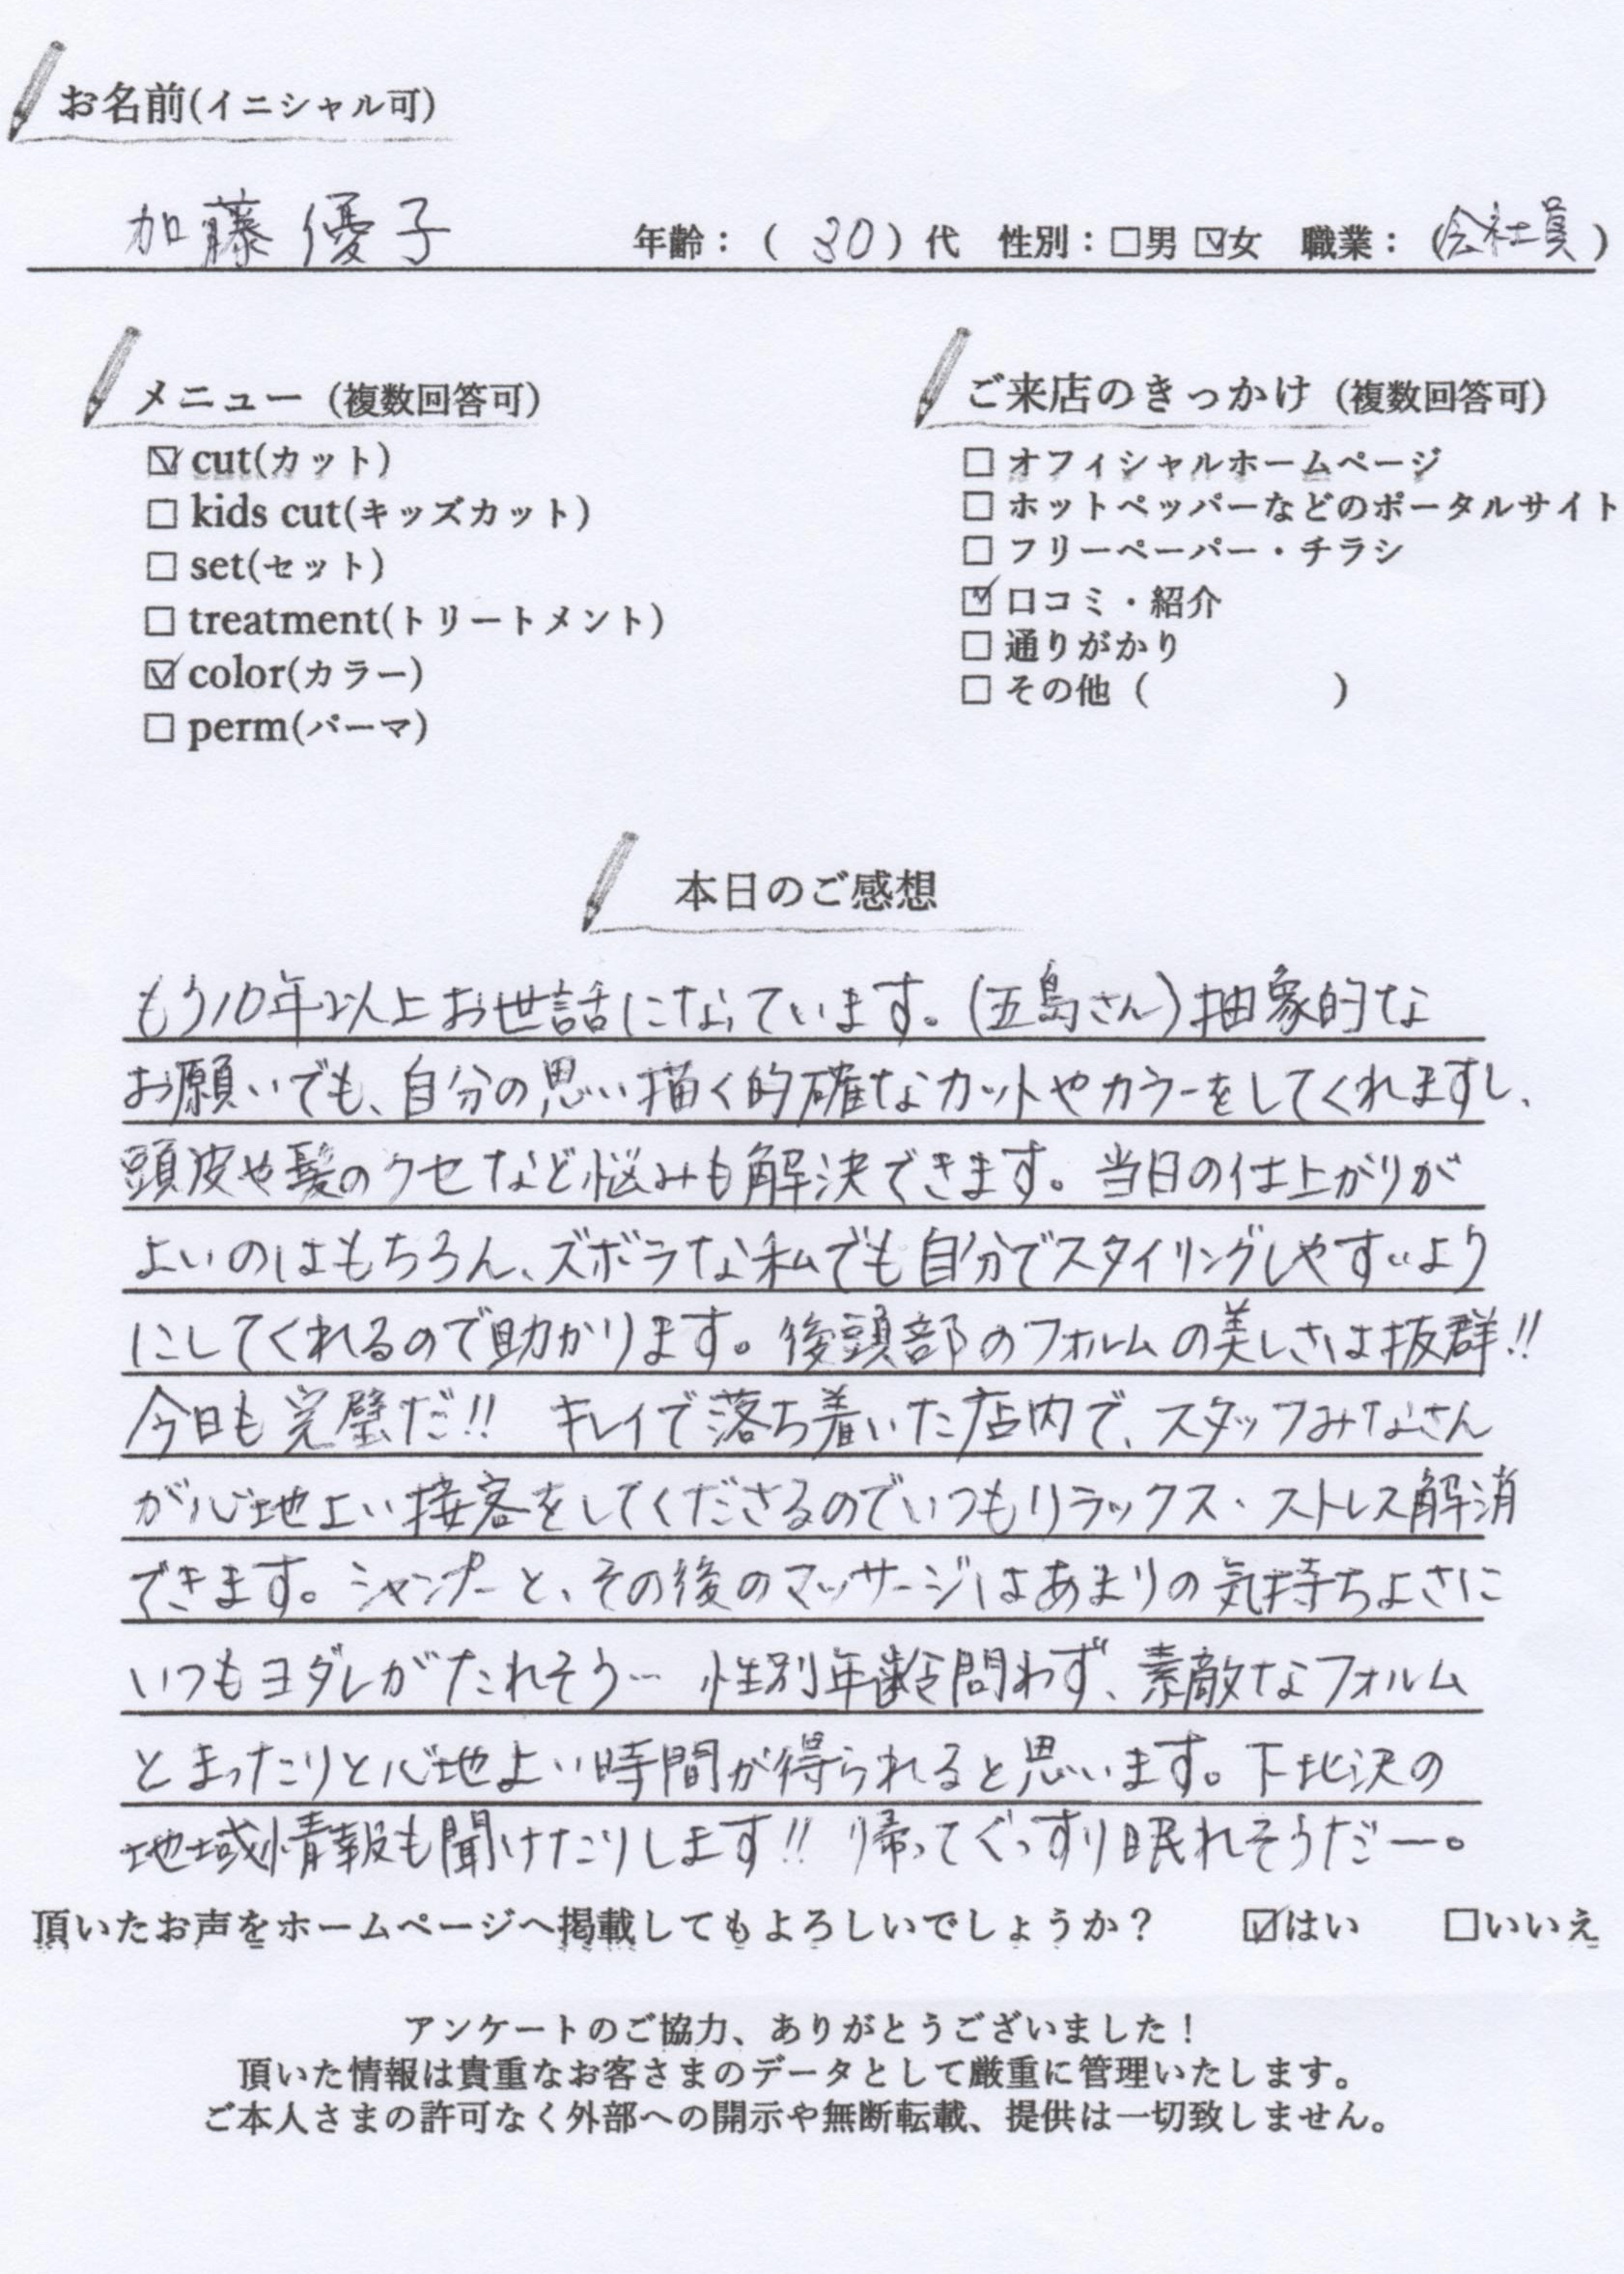 お名前(イニシャル可)
加藤 優子 年齢：( 30 ) 代 性別：□男 ☑女 職業：(会社員)
メニュー (複数回答可)
☑ cut(カット)
□ kids cut(キッズカット)
□ set(セット)
□ treatment(トリートメント)
☑ color(カラー)
□ perm(パーマ)
ご来店のきっかけ (複数回答可)
□ オフィシャルホームページ
□ ホットペッパーなどのポータルサイト
□ フリーペーパー・チラシ
☑ 口コミ・紹介
□ 通りがかり
□ その他 ( )
本日のご感想
もう10年以上お世話になっています。(五島さん)抽象的な
お願いでも、自分の思い描く的確なカットやカラーをしてくれますし、
頭皮や髪のクセなど悩みも解決できます。当日の仕上がりが
よいのはもちろん、ズボラな私でも自分でスタイリングしやすいよう
にしてくれるので助かります。後頭部のフォルムの美しさは抜群!!
今日も完璧だ!! キレイで落ち着いた店内で、スタッフみなさん
が心地よい接客をしてくださるのでいつもリラックス・ストレス解消
できます。シャンプーと、その後のマッサージはあまりの気持ちよさに
いつもヨダレがたれそう… 性別年齢問わず、素敵なフォルム
とまったりと心地よい時間が得られると思います。下北沢の
地域情報も聞けたりします!! 帰ってぐっすり眠れそうだー。
頂いたお声をホームページへ掲載してもよろしいでしょうか？ ☑はい □いいえ
アンケートのご協力、ありがとうございました！
頂いた情報は貴重なお客さまのデータとして厳重に管理いたします。
ご本人さまの許可なく外部への開示や無断転載、提供は一切致しません。